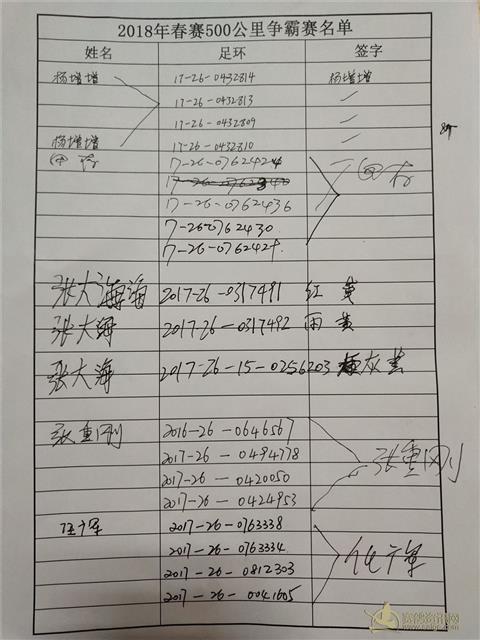 2018年春赛500公里争霸赛名单
姓名 足环 签字
杨增增 17-26-0432814 杨增增
17-26-0432813
17-26-0432809
杨增增 17-26-0432810
17-26-0762424
17-26-0762436
17-26-0762430
17-26-0762429
张大海海 2017-26-0317491 红 黄
张大海 2017-26-0317492 雨 黄
张大海 2017-26-15-0256203 灰 黄
张重刚 2016-26-0646567
2017-26-0494778 张重刚
2017-26-0420050
2017-26-0424953
2017-26-0763338
2017-26-0763334
2017-26-0812303
2017-26-0041605